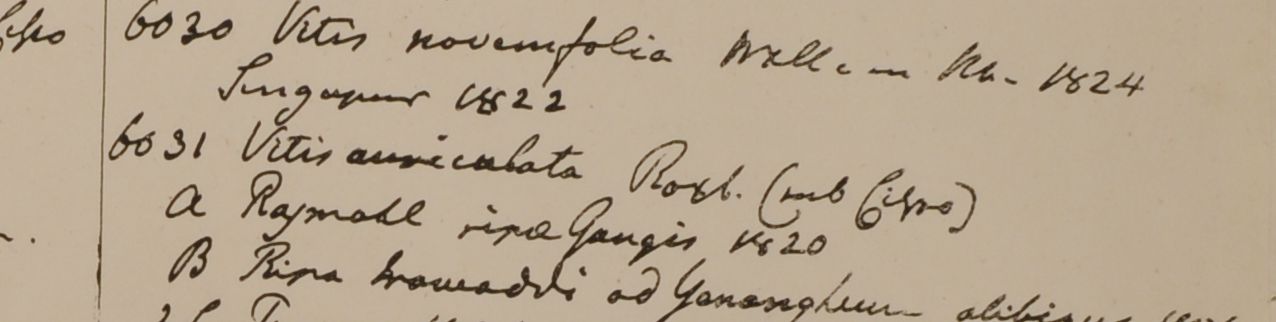 Cisso
6030 Vitis novemfolia Wall. in Hb. 1824
Singapur 1822
6031 Vitis auriculata Roxb. (sub Cisso)
A Rajmahl ripæ Gangis 1820
B Ripa Irawaddi ad Yenangheum alibique